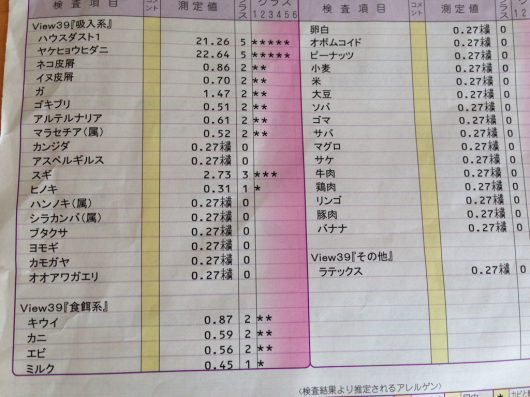 検査項目 測定値 クラス 1 2 3 4 5 6
View39『吸入系』
ハウスダスト1 21.26 5 *****
ヤケヒョウヒダニ 22.64 5 *****
ネコ皮屑 0.86 2 **
イヌ皮屑 0.70 2 **
ガ 1.47 2 **
ゴキブリ 0.51 2 **
アルテルナリア 0.61 2 **
マラセチア(属) 0.52 2 **
カンジダ 0.27未満 0
アスペルギルス 0.27未満 0
スギ 2.73 3 ***
ヒノキ 0.31 1 *
ハンノキ(属) 0.27未満 0
シラカンバ(属) 0.27未満 0
ブタクサ 0.27未満 0
ヨモギ 0.27未満 0
カモガヤ 0.27未満 0
オオアワガエリ 0.27未満 0
View39『食餌系』
キウイ 0.87 2 **
カニ 0.59 2 **
エビ 0.56 2 **
ミルク 0.45 1 *
検査項目 コメント 測定値 クラス 1 2
卵白 0.27未満 0
オボムコイド 0.27未満 0
ピーナッツ 0.27未満 0
小麦 0.27未満 0
米 0.27未満 0
大豆 0.27未満 0
ソバ 0.27未満 0
ゴマ 0.27未満 0
サバ 0.27未満 0
マグロ 0.27未満 0
サケ 0.27未満 0
牛肉 0.27未満 0
鶏肉 0.27未満 0
リンゴ 0.27未満 0
豚肉 0.27未満 0
バナナ 0.27未満 0
View39『その他』
ラテックス 0.27未満 0
〈検査結果より推定されるアレルゲン〉